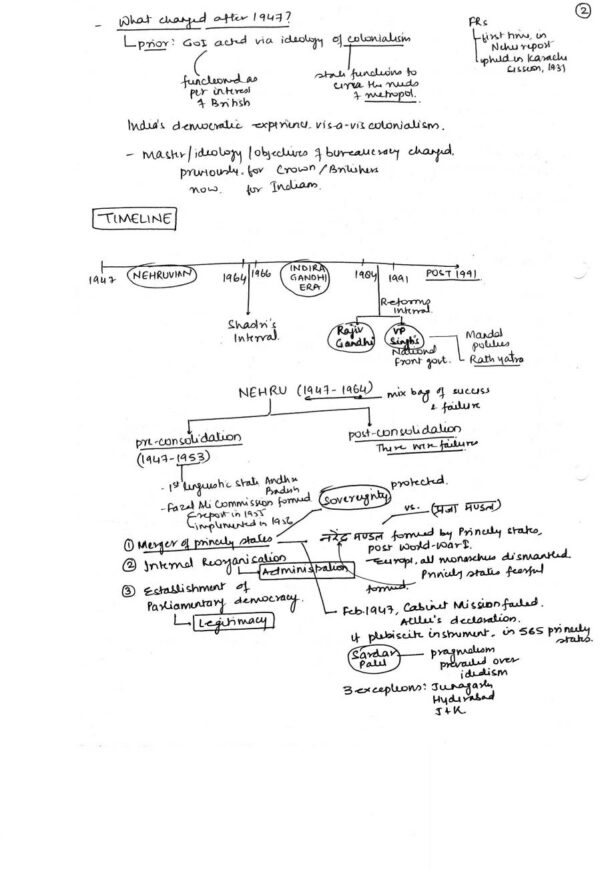 ②
- What changed after 1947?
FRs
first time, in
Nehru report
upheld in Karachi
session, 1931
prior: GoI acted via ideology of colonialism
functioned as
per interest
of British
state functions to
the needs
of metropol.
India's democratic experience vis-a-vis colonialism.
- Master/ideology/objectives of bureaucracy changed.
previously for Crown/Britishers
now for Indians.
TIMELINE
1947
NEHRUVIAN
1964
1966
INDIRA
GANDHI
ERA
1984
1991
POST 1991
Shastri's
Interval
Reforms
Interval
Rajiv
Gandhi
VP
Singh's
National
Front govt.
Mandal
politics
Rath yatra
NEHRU (1947-1964)
mix bag of success
& failure
pre-consolidation
(1947-1953)
post-consolidation
There were failures
- 1st linguistic state Andhra
Pradesh
- Fazal Ali Commission formed
report in 1955
implemented in 1956
Sovereignty
protected.
① Merger of princely states
नरेंद्र मण्डल
vs.
(प्रजा मण्डल)
formed by Princely states,
post World-War I.
Europe, all monarchies dismantled.
Princely states fearful
formed.
② Internal Reorganisation
Administration
③ Establishment of
Parliamentary democracy.
Legitimacy
Feb.1947, Cabinet Mission failed.
Atlee's declaration.
plebiscite instrument in 565 princely
states.
Sardar
Patel
pragmatism
prevailed over
idealism
3 exceptions: Junagarh
Hyderabad
J+K